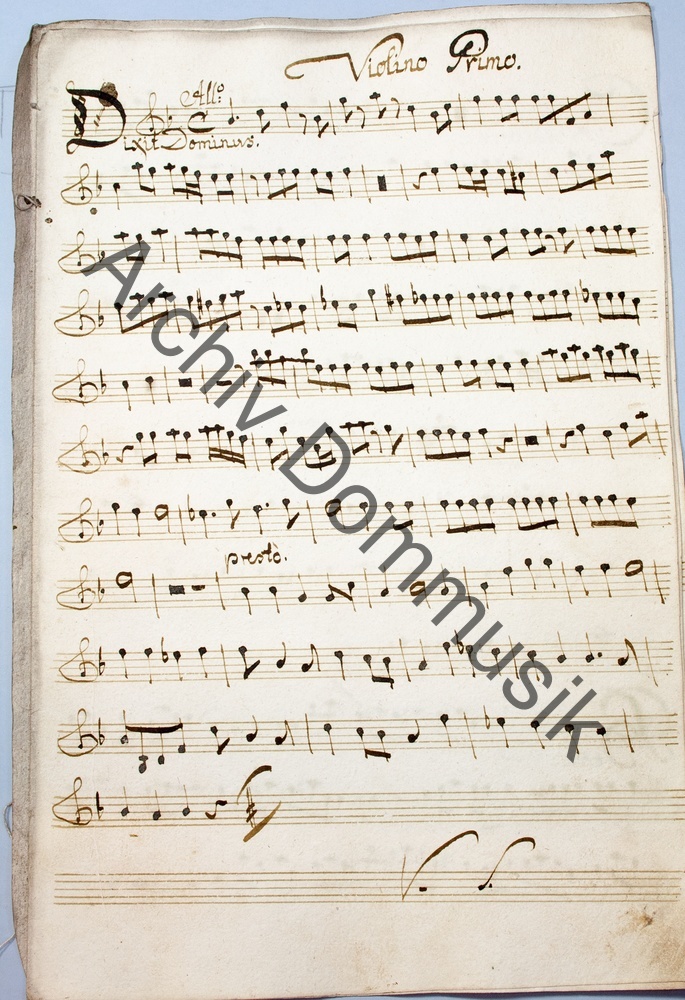 Violino Primo.
All:o
Dixit Dominus.
presto.
V. S.
Archiv Dommusik